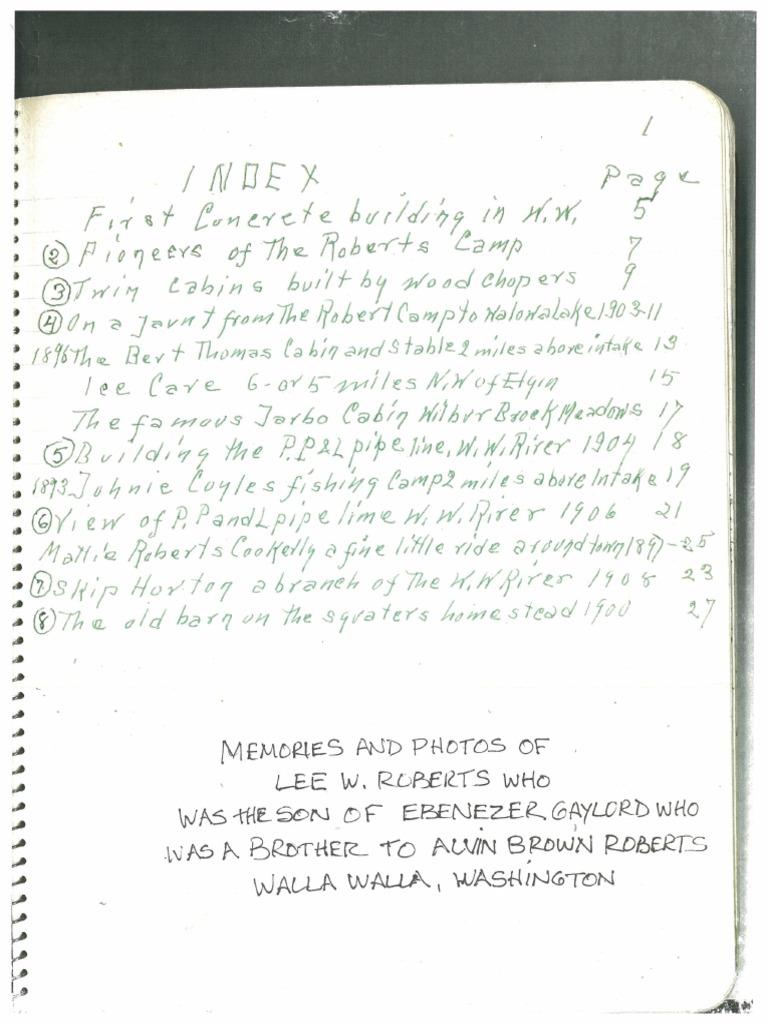 1
INDEX Page
First Concrete building in W.W. 5
② Pioneers of The Roberts Camp 7
③ Twin Cabins built by wood chopers 9
④ On a Jaunt from The Robert Camp to Walowa Lake 1903-11
1896 The Bert Thomas Cabin and Stable 2 miles above intake 13
Ice Cave 6-or 5 miles N.W of Elgin 15
The famous Jarbo Cabin Wilbur Brock Meadows 17
⑤ Building the P.P&L pipe line, W.W. River 1904 18
1893 Johnie Coyles fishing Camp 2 miles above Intake 19
⑥ View of P.P and L pipe lime W.W. River 1906 21
Mattie Roberts Cookelly a fine little ride around town 1897-25
⑦ Skip Horton a branch of The W.W River 1908 23
⑧ The old barn on the squaters homestead 1900 27
MEMORIES AND PHOTOS OF
LEE W. ROBERTS WHO
WAS THE SON OF EBENEZER GAYLORD WHO
WAS A BROTHER TO ALVIN BROWN ROBERTS
WALLA WALLA, WASHINGTON